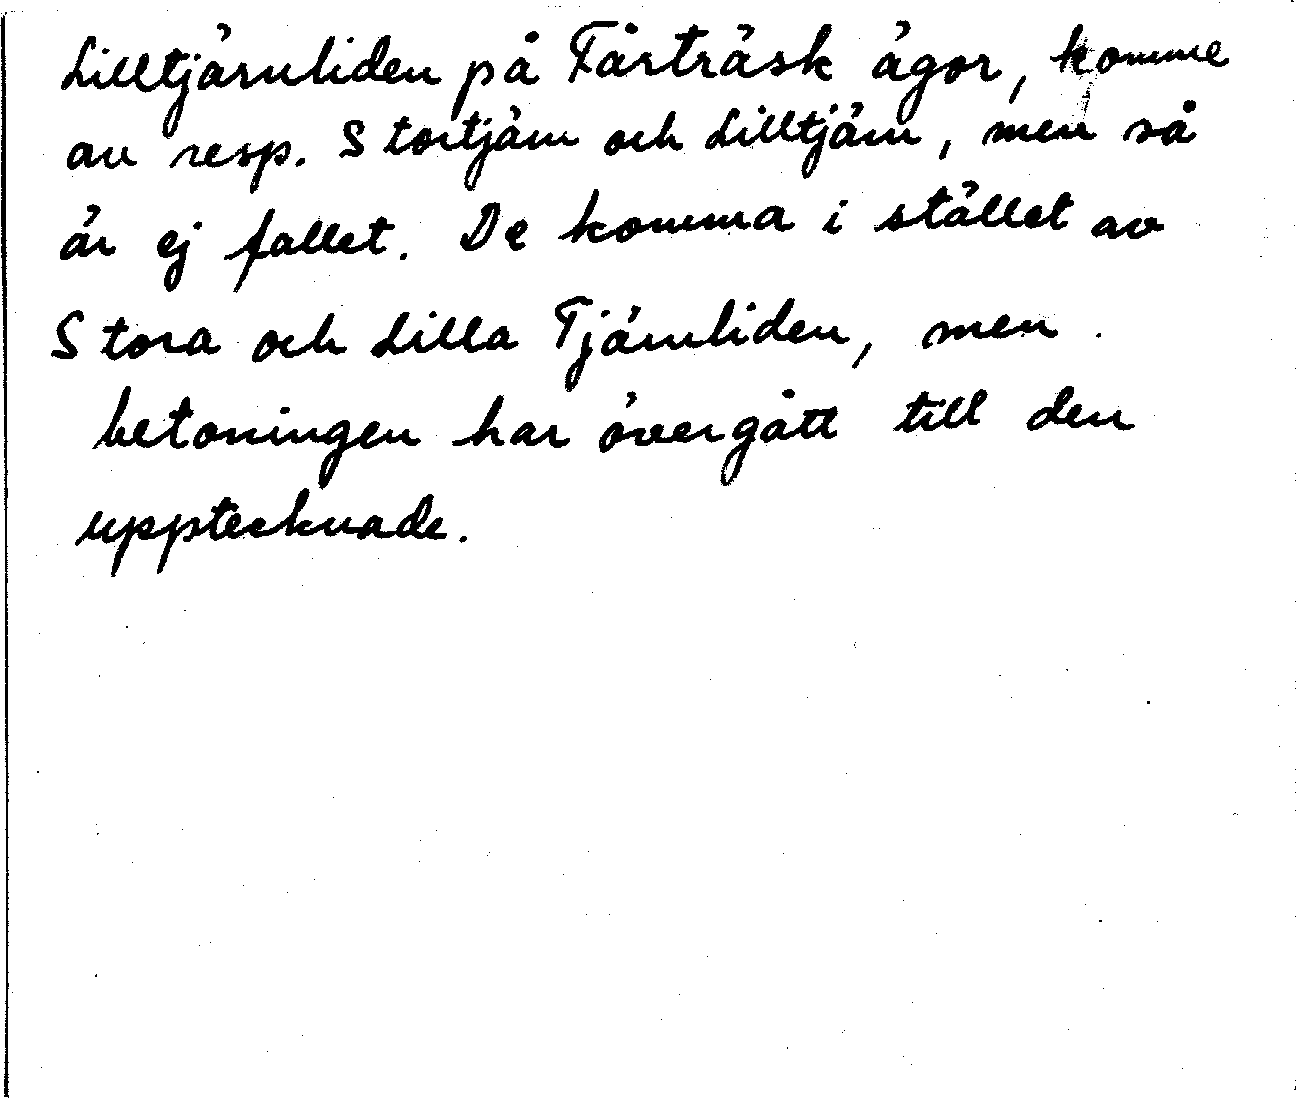 Lilltjärnliden på Fårträsk ägor, komme
av resp. Stortjärn och Lilltjärn, men så
är ej fallet. De komma i stället av
Stora och Lilla Tjärnliden, men
betoningen har övergått till den
upptecknade.